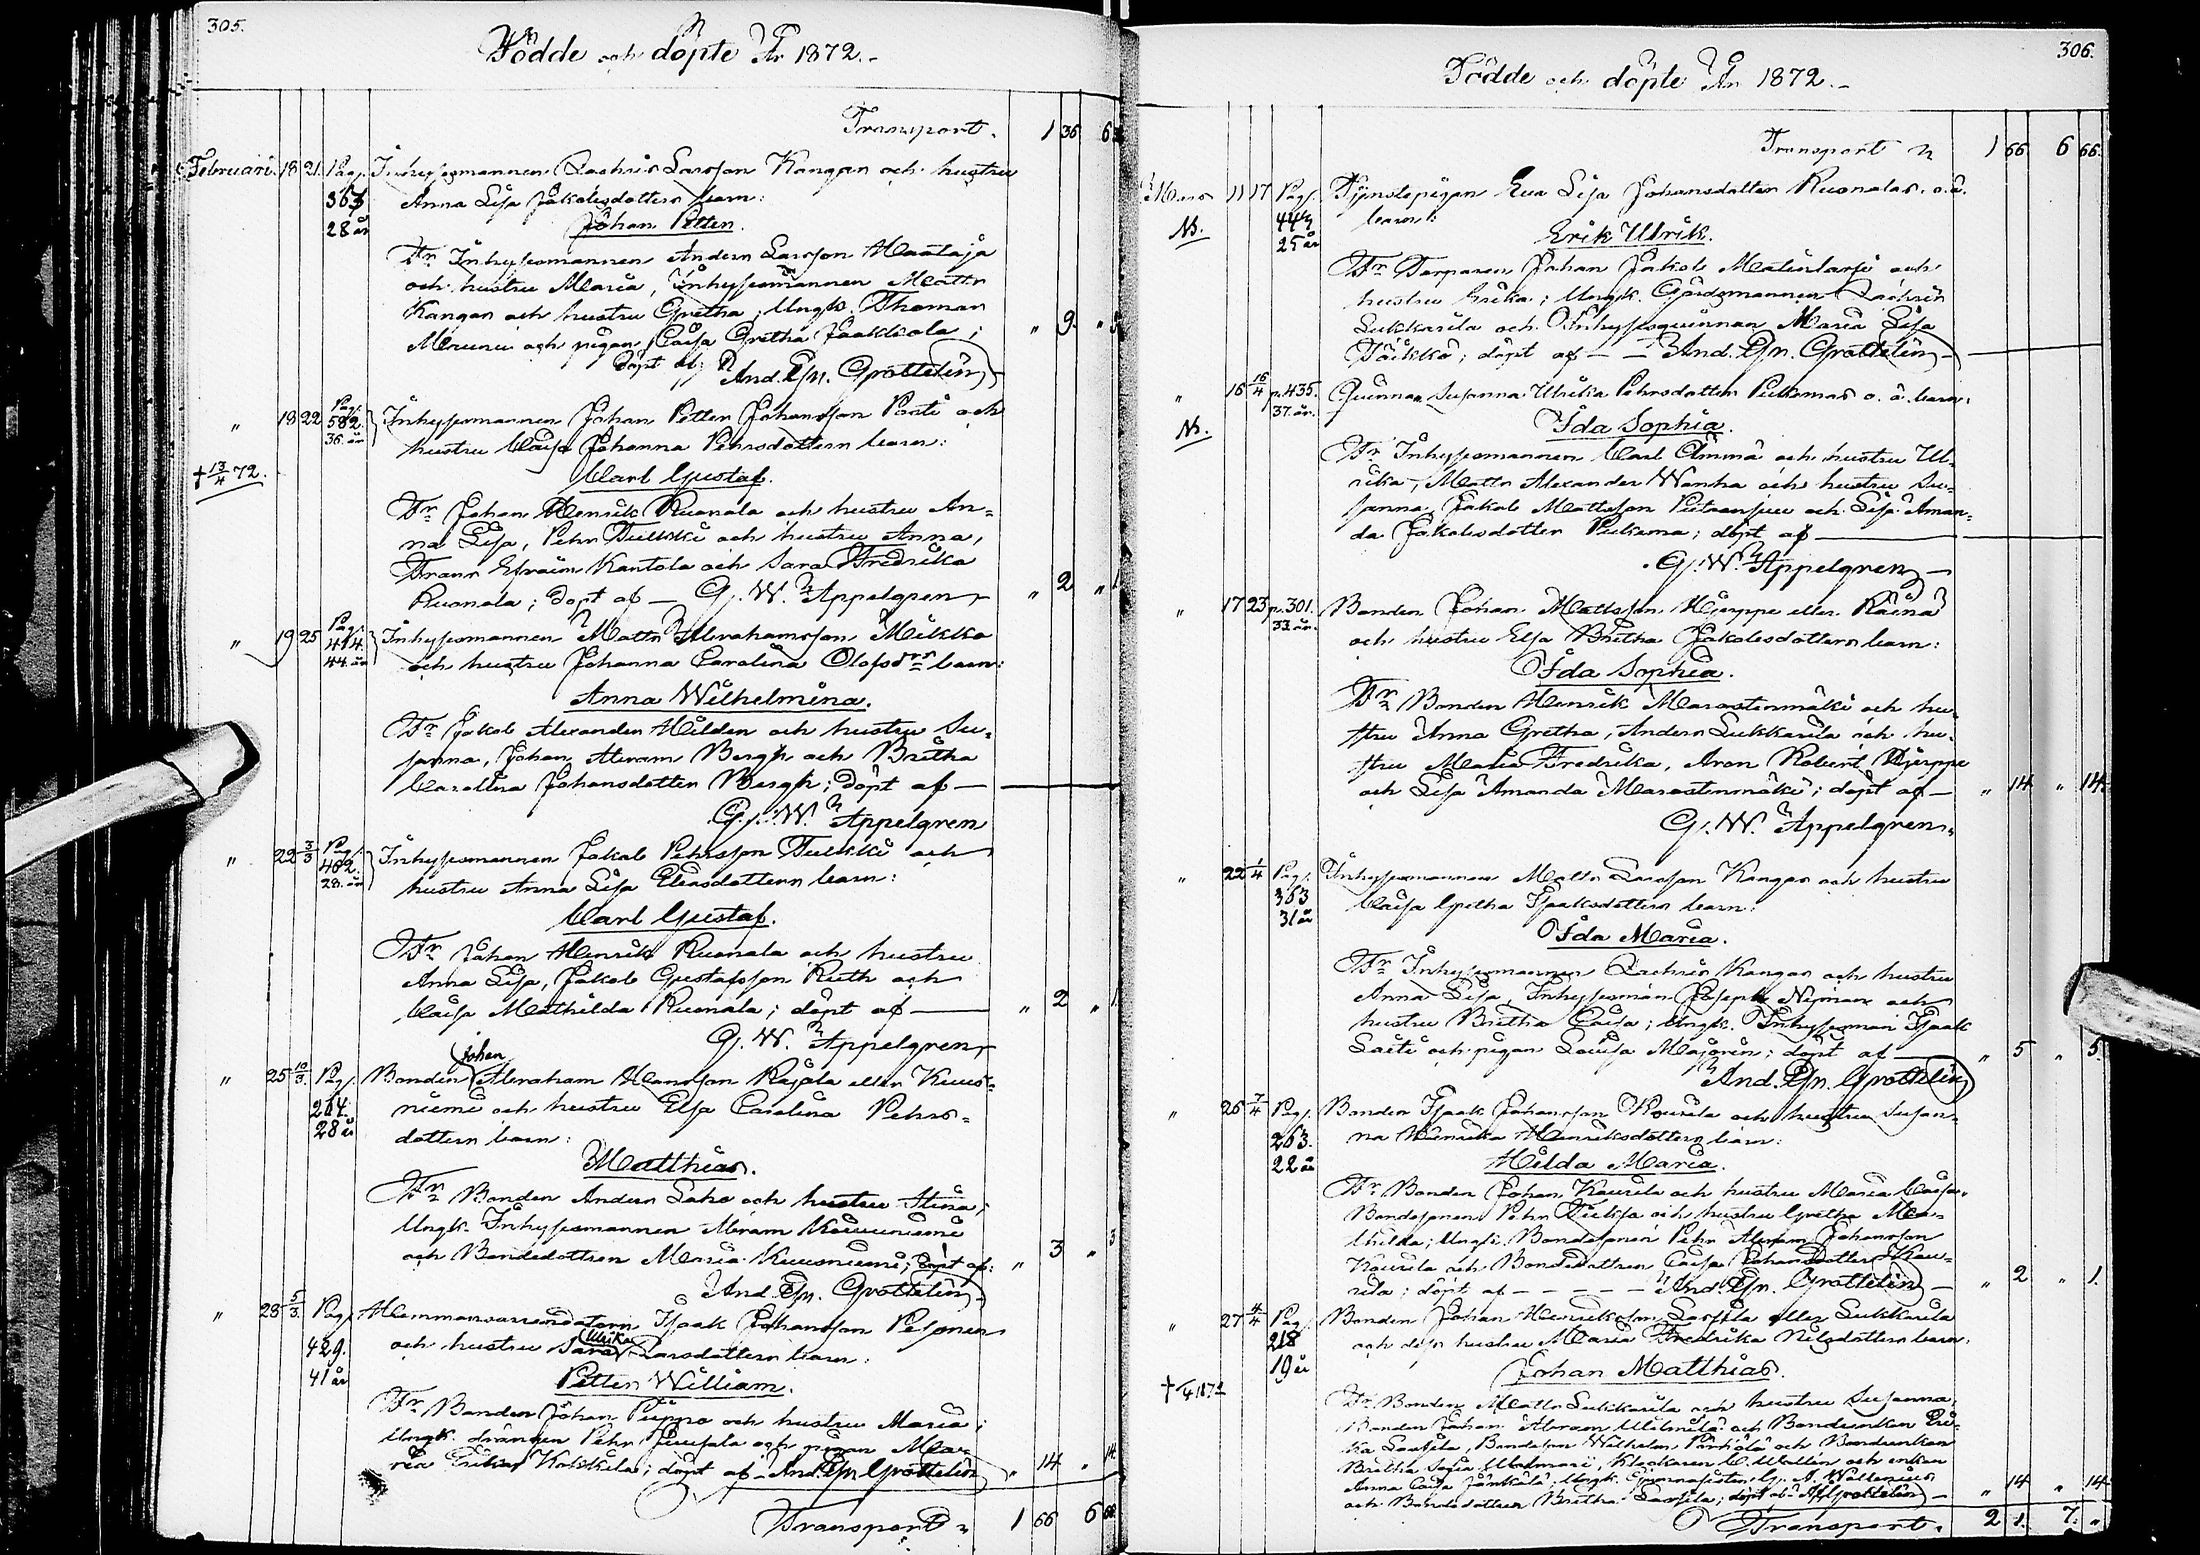 305.
Födde och döpte År 1872.
Transport. 1 36 6
Februari. 18 21. Pag. Inhysesmannen Zachris Larsson Kangas och hustru
363 Anna Lisa Jakobsdotters barn:
28 år Johan Petter.
Fr. Inhysesmannen Anders Larsson Maataja
och hustru Maria, Inhysesmannen Matts
Kangas och hustru Gretha; Ungk. Thomas
och pigan Caisa Gretha Jaakkola; " 9. "
döpt af And. Joh. Grottelin
" 18 22 Pag. 582. Inhysesmannen Johan Petter Johansson Ponti och
36. år hustru Caisa Johanna Pehrsdotters barn:
† 13/4 72. Carl Gustaf.
Fr. Johan Henrik Ruonala och hustru An-
na Lisa, Pehr Tulkki och hustru Anna,
Frans Efraim Kantola och Sara Fredrika
Ruonala; döpt af — G. W. Appelgren " 2 " 1
" 19 25 Pag. 414. Inhysesmannen Matts Abrahamsson Mikko
44. år och hustru Johanna Carolina Olofsdrs barn:
Anna Wilhelmina.
Fr. Jakob Alexander Hilden och hustru Su-
sanna, Johan Abram Bergh och Britha
Carolina Johansdotter Bergh; döpt af —
G. W. Appelgren
" 22 3/3 Pag. 402. Inhysesmannen Jakob Pehrsson Tulkki och
28. år hustru Anna Lisa Eliasdotters barn:
Carl Gustaf.
Fr. Johan Henrik Ruonala och hustru
Anna Lisa, Jakob Gustafsson Ruth och
Caisa Mathilda Ruonala; döpt af — " 2 " 1.
G. W. Appelgren
Johan
" 25 10/3. Pag. Bonden Abraham Hansson Rajala eller Kuus-
264. niemi och hustru Elsa Carolina Pehrs-
28 år dotters barn:
Matthias.
Fr. Bonden Anders Saho och hustru Stina,
Ungk. Inhysesmannen Abram Kuusniemi
och Bondedottren Maria Kuusniemi; döpt af: " 3 " 3
And. Joh. Grottelin
" 28 5/3. Pag. Hemmansarrendatorn Isaak Johansson Pesonen
Ulrika
429. och hustru Sara Larsdotters barn:
41 år Petter William.
Fr. Bonden Johan Piippo och hustru Maria;
Ungk. drängen Pehr Junsala och pigan Ma-
ria Erika Koskela; döpt af And. Joh. Grottelin " 14 " 14
Transport 1 66 6 66
306.
Födde och döpte År 1872.
Transport 1 66 6 66.
Mars 11 17 Pag. Tjenstepigan Eva Lisa Johansdotter Ruonalas o. ä.
N. 443 barn:
25 år Erik Ulrik.
Fr. Torparen Johan Jakob Matinlassi och
hustru Erika; Ungk. Gårdsmannen Zachris
Sukkarila och Inhysesqvinnan Maria Lisa
döpt af — And. Joh. Grottelin
" 16 16/4 p. 435. Quinnan Susanna Ulrika Pehrsdotter Pulkamas o. ä. barn:
N. 37. år. Ida Sophia.
Fr. Inhysesmannen Carl Ämmä och hustru Ul-
rika, Matts Alexander Wanha och hustru Su-
sanna, Jakob Mattsson och Lisa Aman-
da Jakobsdotter Pulkama; döpt af —
G. W. Appelgren
" 17 23 p. 301. Bonden Johan Mattsson Hjerppe eller Raina
33. år. och hustru Elsa Britha Jakobsdotters barn:
Ida Sophia.
Fr. Bonden Henrik Marastenmäki och hu-
stru Anna Gretha, Anders Sukkarila och hu-
stru Maria Fredrika, Aron Robert Hjerppe
och Lisa Amanda Marastenmäki; döpt af — " 14 " 14.
G. W. Appelgren.
" 22 1/4 Pag. Inhysesmannen Matts Larsson Kangas och hustru
363 Caisa Gretha Isaksdotters barn:
31 år Ida Maria.
Fr. Inhysesmannen Zachris Kangas och hustru
Anna Lisa, Inhysesman Joseph Nyman och
hustru Britha Caisa; Ungk. Inhysesman Isaak
Laiti och pigan Lovisa Majorin; döpt af — " 5 " 5.
And. Joh. Grottelin
" 26 7/4 Pag. Bonden Isaak Johansson Kourila och hustru Susan-
263. na Henrika Henriksdotters barn:
22 år Hilda Maria.
Fr. Bonden Johan Kourila och hustru Maria Caisa,
Bondesonen Pehr och hustru Gretha Ma-
thilda; Ungk. Bondesonen Pehr Abram Johansson
Kourila och Bondedottren Caisa Johansdotter Kou-
rila; döpt af — And. Joh. Grottelin — " 2 " 1.
" 27 4/4 Pag. Bonden Johan Henriksson Lassila eller Sukkarila
218 och dess hustru Maria Fredrika Nilsdotters barn:
19 år Johan Matthias.
† 1872
Fr. Bonden Matts Sukkarila och hustru Susanna,
Bonden Johan Abram och Bondeenkan Eri-
ka Lassila, Bondeson Wilhelm och Bondeenkan
Britha Sofia, Klockaren C. Wallin och enkan
Anna Caisa, Ungk. Gymnasisten G. A. Wallenius
och Bondedottren Britha Lassila; döpt af A J Grottelin — " 14 " 14
Transport. 2 1. 7. "